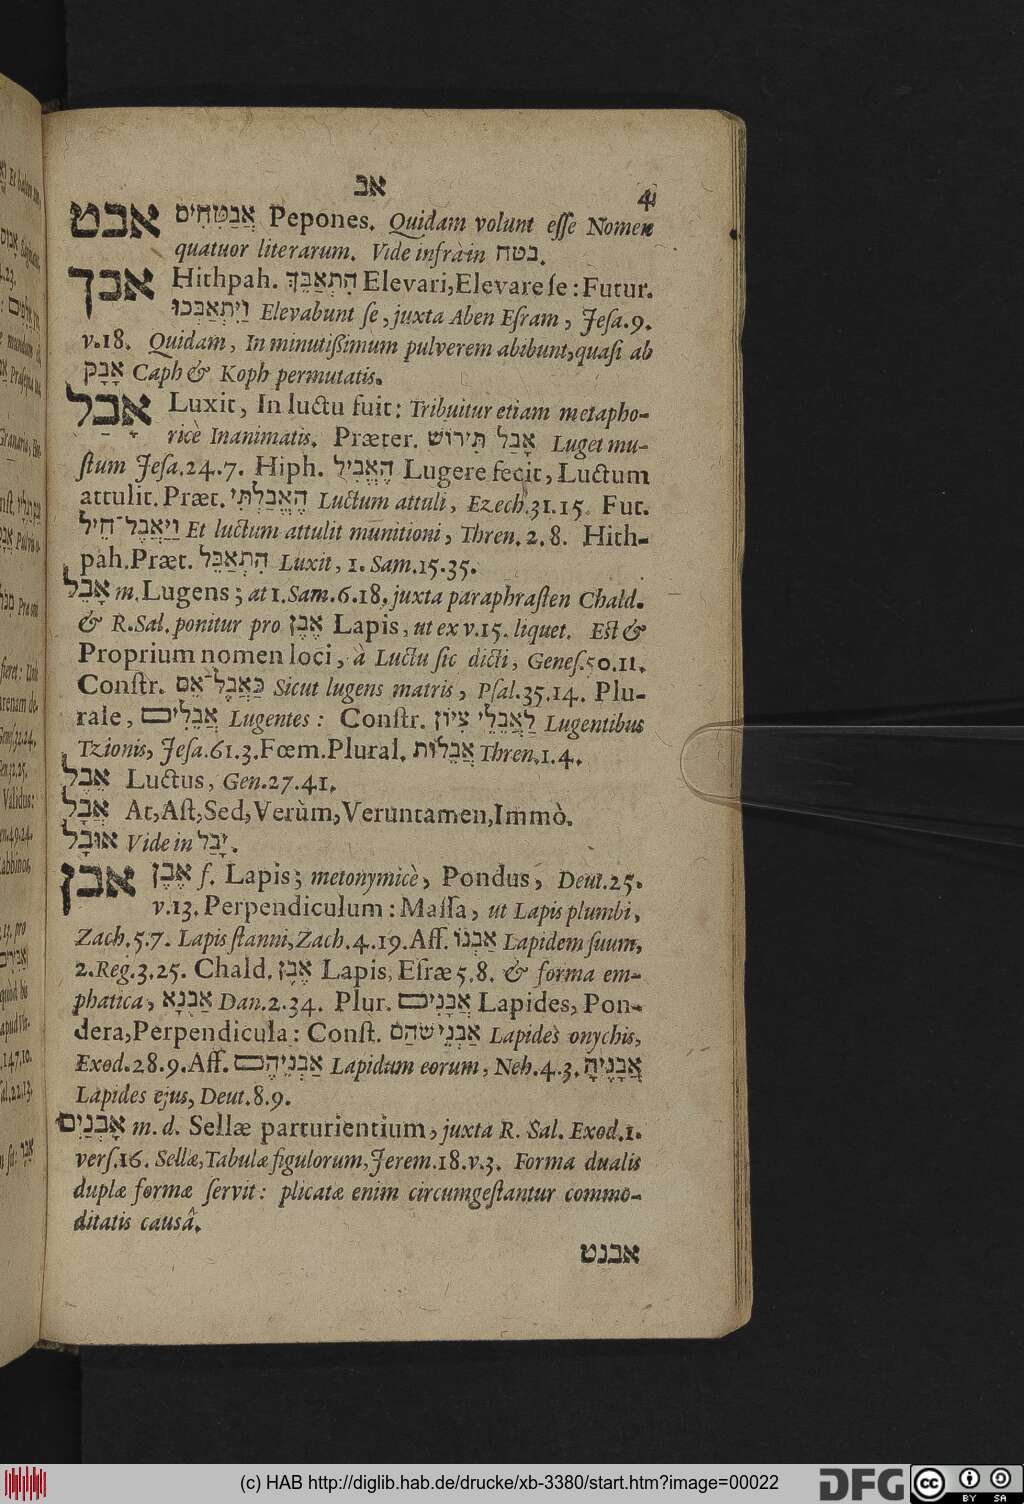 אב 4
אבט אֲבַטִּחִים Pepones. Quidam volunt eſſe Nomen
quatuor literarum. Vide infrà in בטח.
אבך Hithpah. הִתְאַבֵּךְ Elevari, Elevare ſe: Futur.
וַיִּתְאַבְּכוּ Elevabunt ſe, juxta Aben Eſram, Jeſa.9.
v.18. Quidam, In minutiſſimum pulverem abibunt, quaſi ab
אָבָק Caph & Koph permutatis.
אָבַל Luxit, In luctu fuit: Tribuitur etiam metapho-
ricè Inanimatis. Præter. אָבַל תִּירוֹשׁ Luget mu-
ſtum Jeſa.24.7. Hiph. הֶאֱבִיל Lugere fecit, Luctum
attulit. Præt. הֶאֱבַלְתִּי Luctum attuli, Ezech.31.15. Fut.
וַיַּאֲבֶל־חֵיל Et luctum attulit munitioni, Thren.2.8. Hith-
pah. Præt. הִתְאַבֵּל Luxit, 1. Sam.15.35.
אָבֵל m. Lugens; at 1.Sam.6.18. juxta paraphraſten Chald.
& R.Sal. ponitur pro אֶבֶן Lapis, ut ex v.15. liquet. Eſt &
Proprium nomen loci, à Luctu ſic dicti, Geneſ.50.11.
Conſtr. כַּאֲבֶל־אֵם Sicut lugens matris, Pſal.35.14. Plu-
rale, אֲבֵלִים Lugentes: Conſtr. לַאֲבֵלֵי צִיּוֹן Lugentibus
Tzionis, Jeſa.61.3. Fœm. Plural. אֲבֵלוֹת Thren.1.4.
אֵבֶל Luctus, Gen.27.41.
אֲבָל At, Aſt, Sed, Verùm, Veruntamen, Immò.
אוּבָל Vide in יָבַל.
אבן אֶבֶן f. Lapis; metonymicè, Pondus, Deut.25.
v.13. Perpendiculum: Maſſa, ut Lapis plumbi,
Zach.5.7. Lapis ſtanni, Zach.4.19. Aff. אַבְנוֹ Lapidem ſuum,
2.Reg.3.25. Chald. אֶבֶן Lapis, Eſræ 5.8. & forma em-
phatica, אַבְנָא Dan.2.34. Plur. אֲבָנִים Lapides, Pon-
dera, Perpendicula: Conſt. אַבְנֵי שֹׁהַם Lapides onychis,
Exod.28.9. Aff. אַבְנֵיהֶם Lapidum eorum, Neh.4.3. אֲבָנֶיהָ
Lapides ejus, Deut.8.9.
אָבְנַיִם m. d. Sellæ parturientium, juxta R. Sal. Exod.1.
verſ.16. Sellæ, Tabulæ figulorum, Jerem.18.v.3. Forma dualis
duplæ formæ ſervit: plicatæ enim circumgeſtantur commo-
ditatis causâ.
אבנט
(c) HAB http://diglib.hab.de/drucke/xb-3380/start.htm?image=00022
DFG cc BY SA